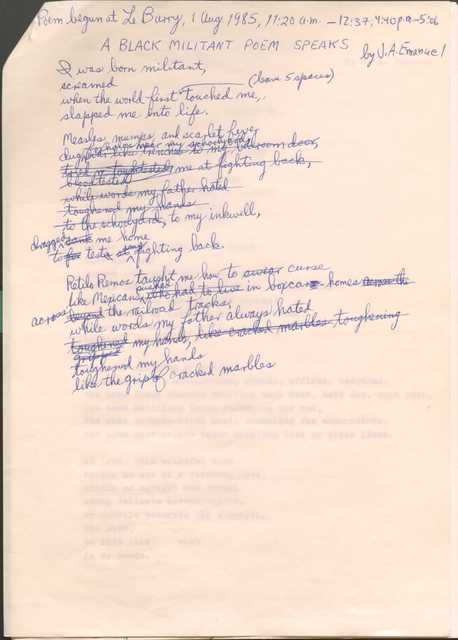 Poem begun at Le Barry, 1 Aug 1985, 11:20 a.m. – 12:37, 4:40 p.m – 5:06
A BLACK MILITANT POEM SPEAKS
by J.A. Emanuel
I was born militant,
screamed (leave 5 spaces)
when the world first touched me,
slapped me into life.
Measles, mumps, and scarlet fever
dug holes near my schoolyard
like trenches to my bedroom door,
me at fighting back,
bloodtested
while words my father hated
toughened my hands
to the schoolyard, to my inkwell,
dragged me home
to tests of fighting back.
Potilo Remos taught me how to swear curse
like Mexicans who had to live in boxcar homes across the
across beyond the railroad tracks,
while words my father always hated
toughened my hands, like cracked marbles, toughening
gripped
toughened my hands
like the grip of cracked marbles